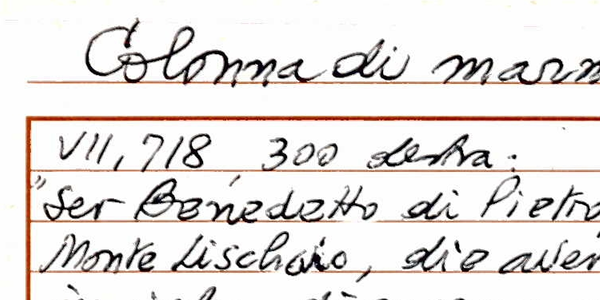 Colonna di marm
VII, 718 300 destra:
"Ser Benedetto di Pietro
Monte Lischaio, die aver